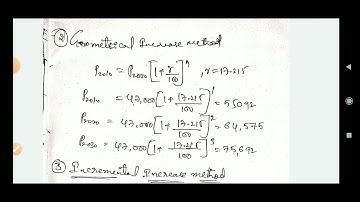 ② Geometrical Increase method
P2010 = P2000 [1 + r/100]^n , r = 17.215
P2010 = 47,000 [1 + 17.215/100]^1 = 55092
P2020 = 47,000 [1 + 17.215/100]^2 = 64,575
P2030 = 47,000 [1 + 17.215/100]^3 = 75,692
③ Incremental Increase method